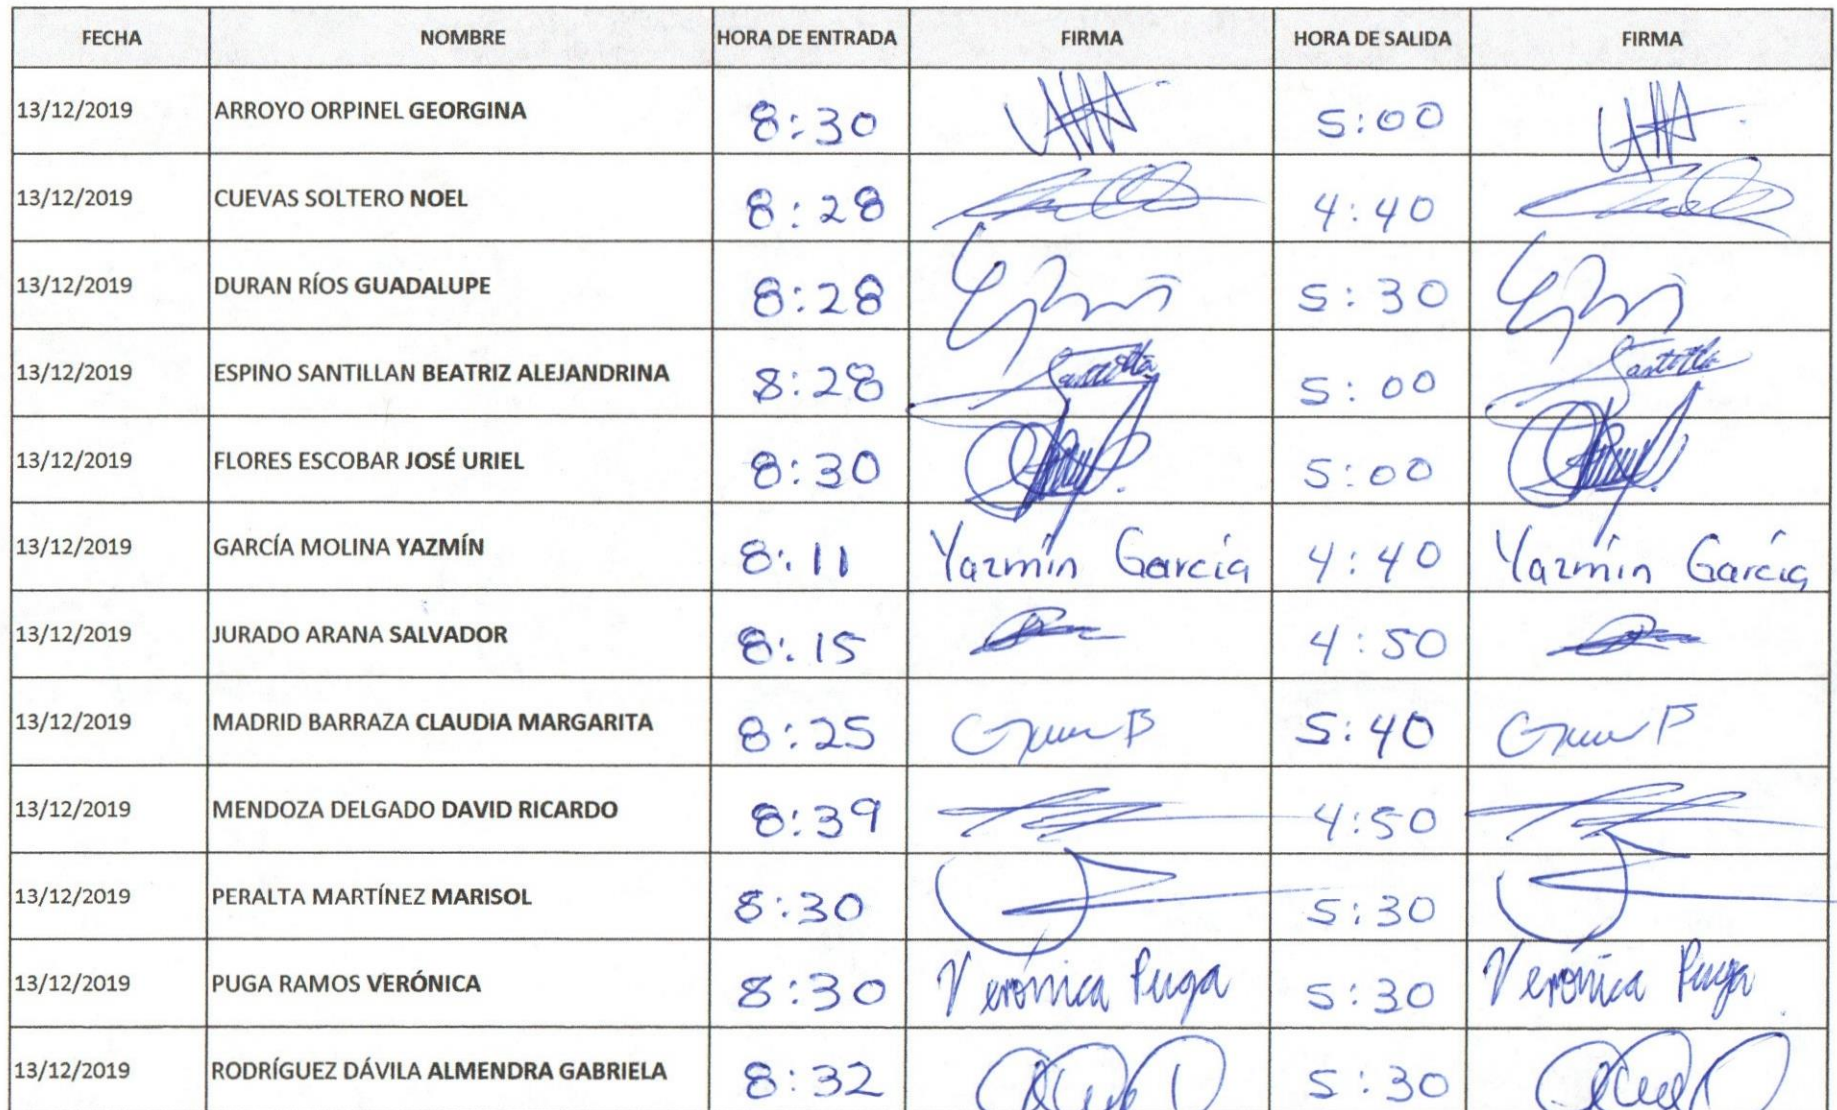 FECHA NOMBRE HORA DE ENTRADA FIRMA HORA DE SALIDA FIRMA
13/12/2019 ARROYO ORPINEL GEORGINA 8:30 5:00
13/12/2019 CUEVAS SOLTERO NOEL 8:28 4:40
13/12/2019 DURAN RÍOS GUADALUPE 8:28 5:30
13/12/2019 ESPINO SANTILLAN BEATRIZ ALEJANDRINA 8:28 5:00
13/12/2019 FLORES ESCOBAR JOSÉ URIEL 8:30 5:00
13/12/2019 GARCÍA MOLINA YAZMÍN 8:11 Yazmín García 4:40 Yazmín García
13/12/2019 JURADO ARANA SALVADOR 8:15 4:50
13/12/2019 MADRID BARRAZA CLAUDIA MARGARITA 8:25 5:40
13/12/2019 MENDOZA DELGADO DAVID RICARDO 8:39 4:50
13/12/2019 PERALTA MARTÍNEZ MARISOL 8:30 5:30
13/12/2019 PUGA RAMOS VERÓNICA 8:30 Verónica Puga 5:30 Verónica Puga
13/12/2019 RODRÍGUEZ DÁVILA ALMENDRA GABRIELA 8:32 5:30